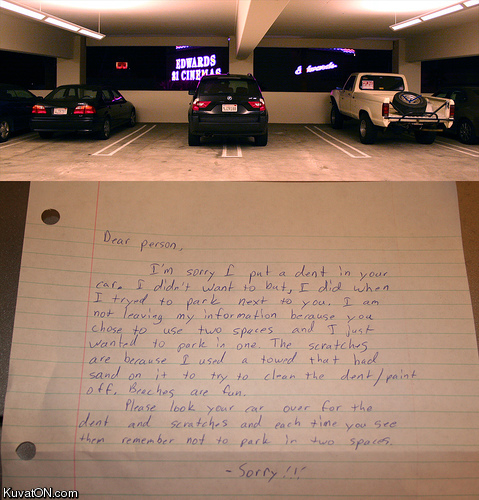 EDWARDS
21 CINEMAS
Dear person,
I'm sorry I put a dent in your
car. I didn't want to but, I did when
I tryed to park next to you. I am
not leaving my information because you
chose to use two spaces and I just
wanted to park in one. The scratches
are because I used a towel that had
sand on it to try to clean the dent/paint
off. Beaches are fun.
Please look your car over for the
dent and scratches and each time you see
them remember not to park in two spaces.
-Sorry!!!
KuvatON.com